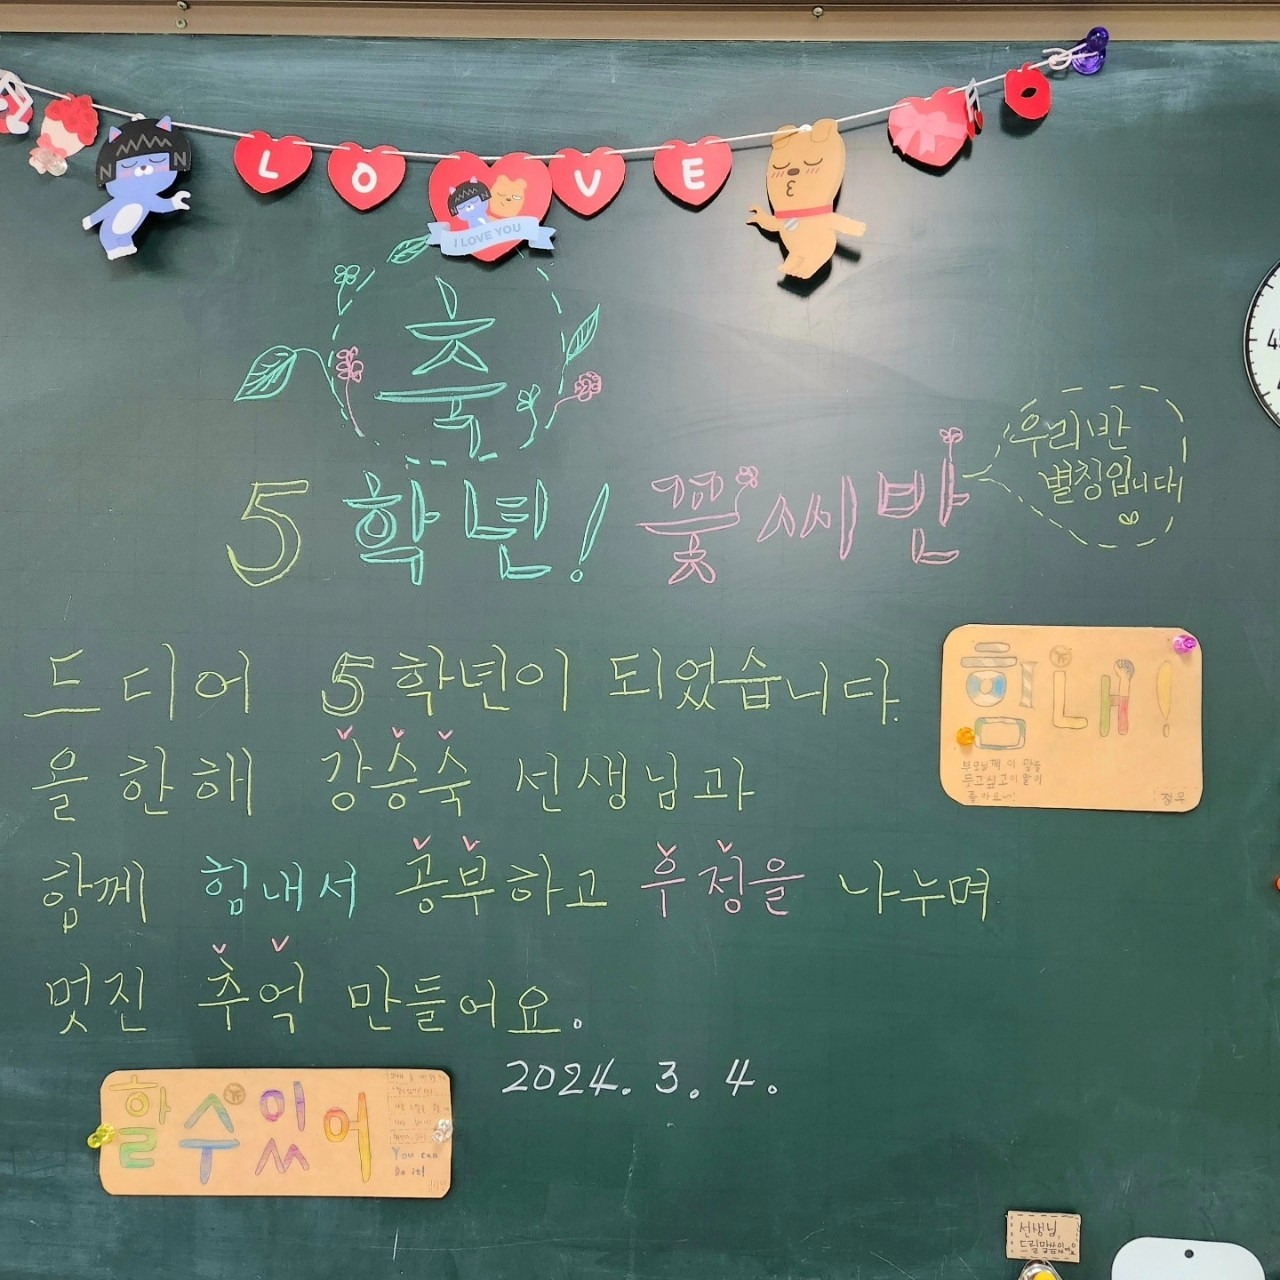 L O V E
I LOVE YOU
축
5학년! 꽃씨반
우리반
별칭입니다!
드디어 5학년이 되었습니다.
올 한 해 강승숙 선생님과
함께 힘내서 공부하고 우정을 나누며
멋진 추억 만들어요.
2024. 3. 4.
힘내!
부모님께 이 말을
듣고싶고 이 말이
좋아요~!
정우
할 수 있어
You can
Do it!
선생님,
45